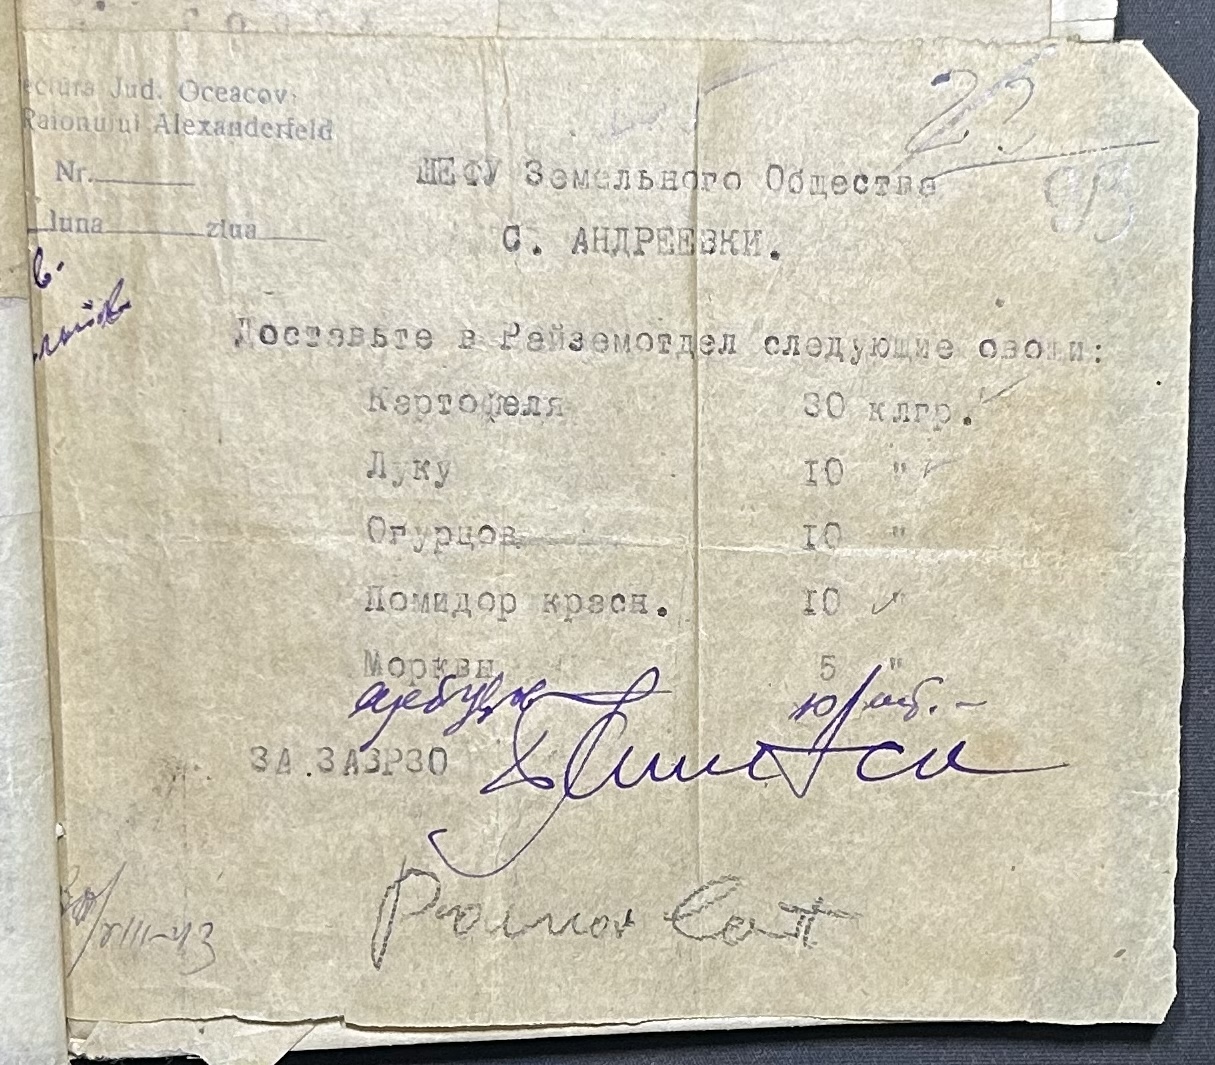 ectura Jud. Oceacov
Raionului Alexanderfeld
Nr.
luna ziua
23
ШЕФУ Земельного Общества
С. АНДРЕЕВКИ.
Доставьте в Райземотдел следующие овощи:
Картофеля 30 клгр.
Луку 10 "
Огурцов 10 "
Помидор красн. 10 "
Моркви 5 "
арбузов 10
ЗА .ЗАВРЗО
30/VIII-43